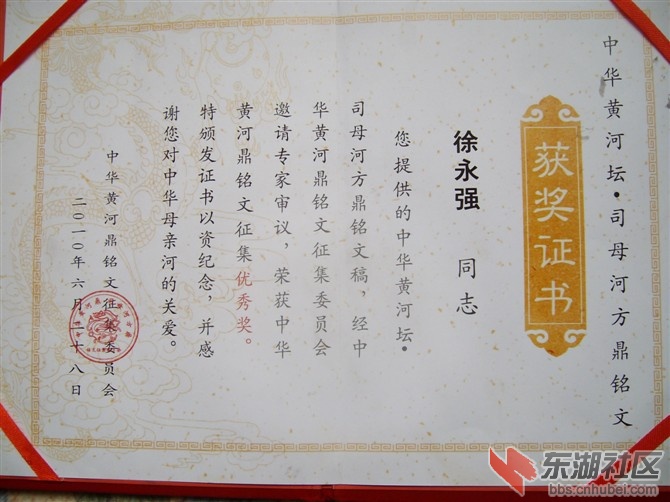 中华黄河坛·司母河方鼎铭文
获奖证书
徐永强 同志
您提供的中华黄河坛·
司母河方鼎铭文稿,经中
华黄河鼎铭文征集委员会
邀请专家审议,荣获中华
黄河鼎铭文征集优秀奖。
特颁发证书以资纪念,并感
谢您对中华母亲河的关爱。
中华黄河鼎铭文征集委员会
二〇一〇年六月二十八日
东湖社区
bbs.cnhubei.com